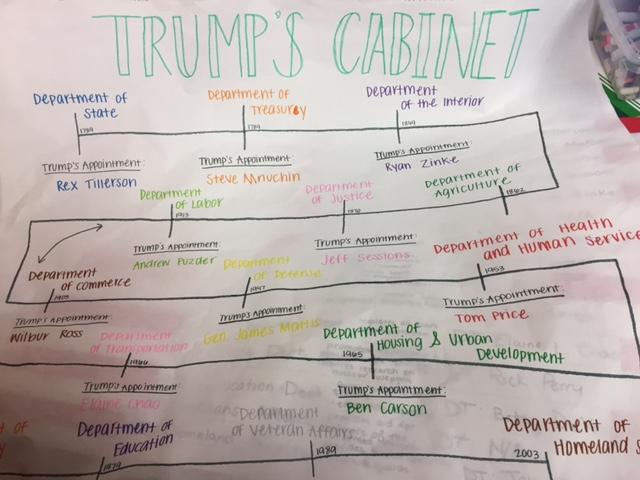 TRUMP'S CABINET
Department of
State
1789
Trump's Appointment:
Rex Tillerson
Department of
Treasury
1789
Trump's Appointment:
Steve Mnuchin
Department
of the Interior
1849
Trump's Appointment:
Ryan Zinke
Department of
Agriculture
1862
Department
of Justice
1870
Trump's Appointment:
Jeff Sessions
Department
of Labor
1913
Trump's Appointment:
Andrew Puzder
Department
of Commerce
1903
Trump's Appointment:
Wilbur Ross
Department
of Defense
1947
Trump's Appointment:
Gen. James Mattis
Department of Health
and Human Service
1953
Trump's Appointment:
Tom Price
Department of
Housing & Urban
Development
1965
Trump's Appointment:
Ben Carson
Department
of Transportation
1966
Trump's Appointment:
Elaine Chao
of
Department of
Education
1979
Department
of Veteran Affairs
1989
Department of
Homeland S
2003
Rick Perry